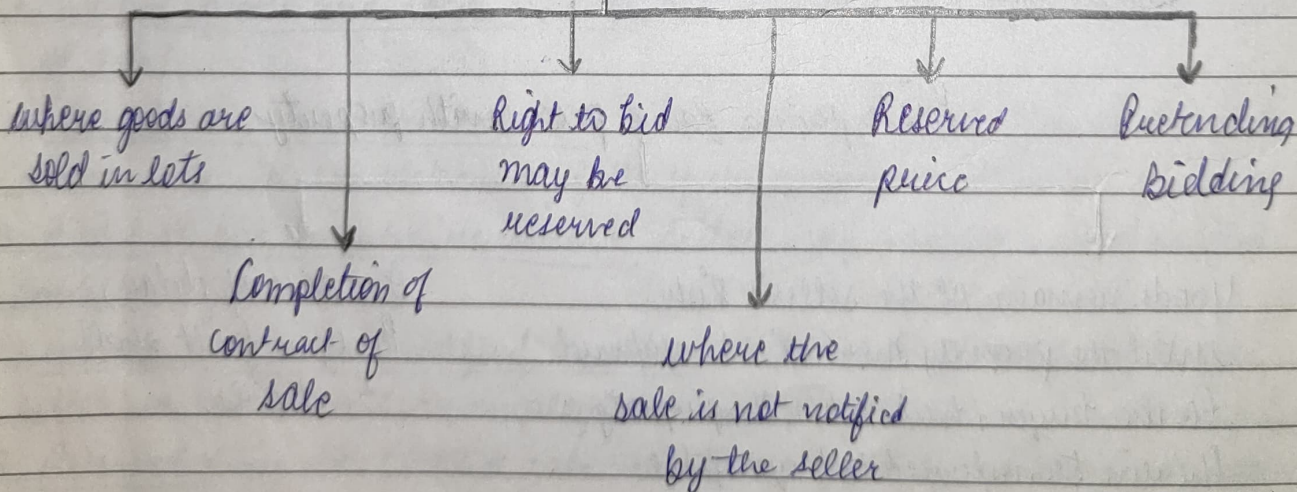 where goods are
sold in lots
Completion of
contract of
sale
Right to bid
may be
reserved
where the
sale is not notified
by the seller
Reserved
price
Pretending
bidding